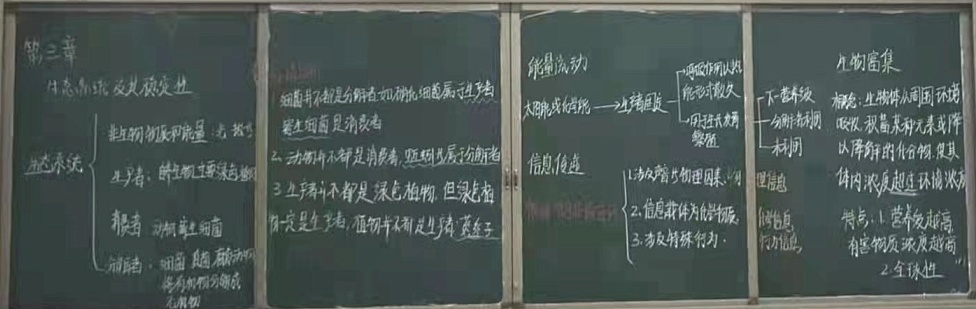 第三章
生态系统及其稳定性
生态系统
非生物物质和能量：光 热
生产者：自养生物，主要绿色植物
消费者：动物 寄生细菌
分解者：细菌 真菌 腐生动物
将有机物分解成
无机物
1.细菌并不都是分解者如硝化细菌属于生产者
寄生细菌是消费者
2.动物并不都是消费者，蚯蚓等属于分解者
3.生产者并不都是绿色植物，但绿色植
物一定是生产者，植物并不都是生产者 菟丝子
能量流动
太阳能→化学能 → 生产者固定
呼吸作用以热
能形式散失
用于生长发育
繁殖
下一营养级
分解者利用
未利用
信息传递
1.涉及声光等物理因素
物理信息
2.信息载体为化学物质
化学信息
3.涉及特殊行为
行为信息
生物富集
概念：生物体从周围环境
吸收、积蓄某种元素或难
以降解的化合物，使其
体内浓度超过环境浓度
特点：1.营养级越高
有害物质浓度越高
2.全球性